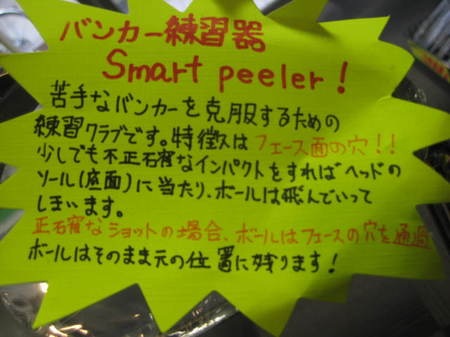 バンカー練習器
Smart peeler!
苦手なバンカーを克服するための
練習クラブです。特徴はフェース面の穴!!
少しでも不正確なインパクトをすればヘッドの
ソール(底面)に当たり、ボールは飛んでいって
しまいます。
正確なショットの場合、ボールはフェースの穴を通過
ボールはそのまま元の位置に残ります!